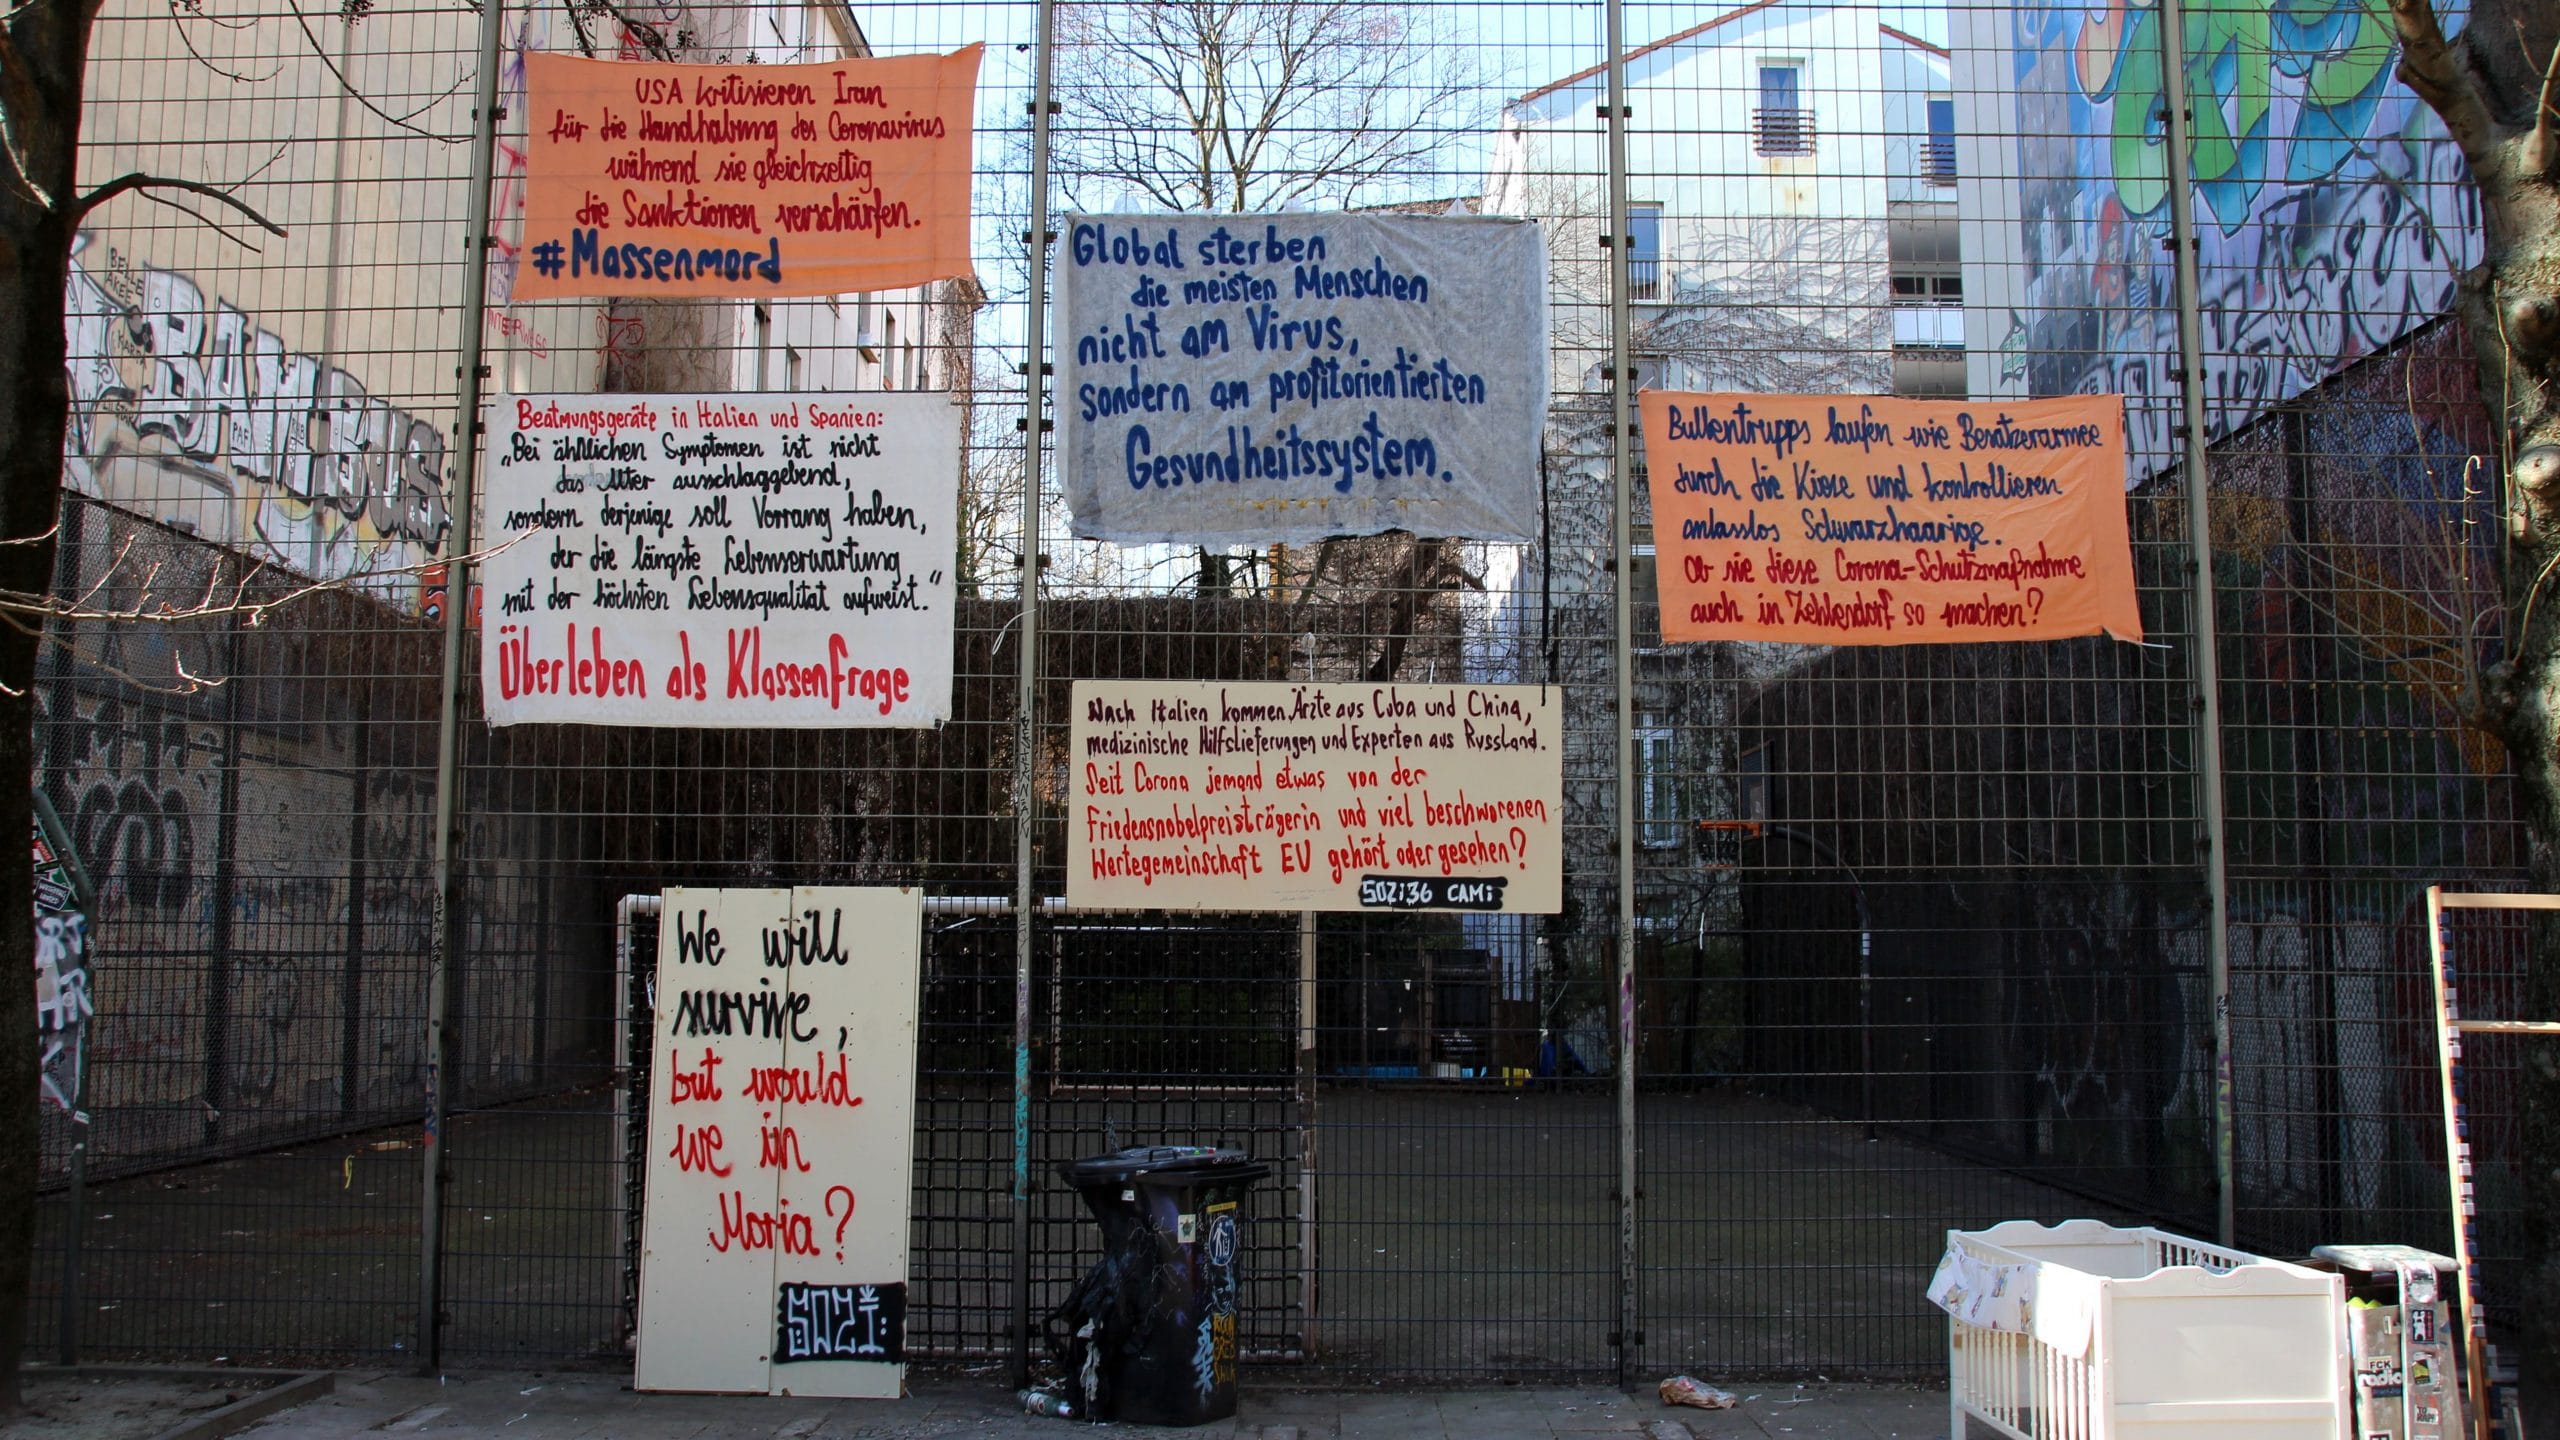 USA kritisieren Iran
für die Handhabung des Coronavirus
während sie gleichzeitig
die Sanktionen verschärfen.
#Massenmord
Beatmungsgeräte in Italien und Spanien:
„Bei ähnlichen Symptomen ist nicht
das Alter ausschlaggebend,
sondern derjenige soll Vorrang haben,
der die längste Lebenserwartung
mit der höchsten Lebensqualität aufweist."
Überleben als Klassenfrage
Global sterben
die meisten Menschen
nicht am Virus,
sondern am profitorientierten
Gesundheitssystem.
Bullentrupps laufen wie Besatzerarmee
durch die Kieze und kontrollieren
anlasslos Schwarzhaarige.
Ob sie diese Corona-Schutzmaßnahme
auch in Zehlendorf so machen?
Nach Italien kommen Ärzte aus Cuba und China,
medizinische Hilfslieferungen und Experten aus Russland.
Seit Corona jemand etwas von der
Friedensnobelpreisträgerin und viel beschworenen
Wertegemeinschaft EU gehört oder gesehen?
SOZi36 CAMi
We will
survive,
but would
we in
Moria?
SOZI
BELLE
AKEE
PAF
FCK
radio